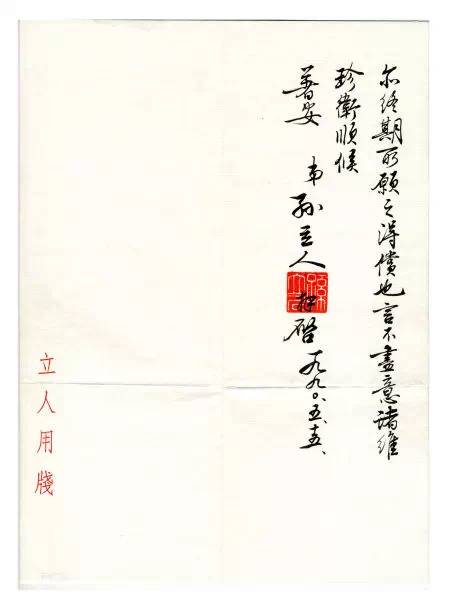 亦終期所願之得償也言不盡意諸維
珍衛順候
安 弟孫立人 啓 一九九〇.五.
立人用牋